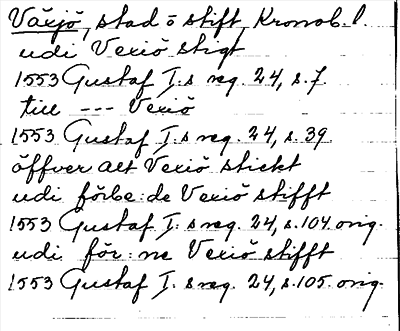 Växjö, stad o stift, Kronob. l.
udi Vexiö stigt
1553 Gustaf I.s reg. 24, s. 7.
till --- Vexiö
1553 Gustaf I.s reg. 24, s. 39.
öffver alt Vexiö stickt
udi förbe:de Vexiö stifft
1553 Gustaf I:s reg. 24, s. 104. orig.
udi för:ne Vexiö stifft
1553 Gustaf I.s reg. 24, s. 105. orig.